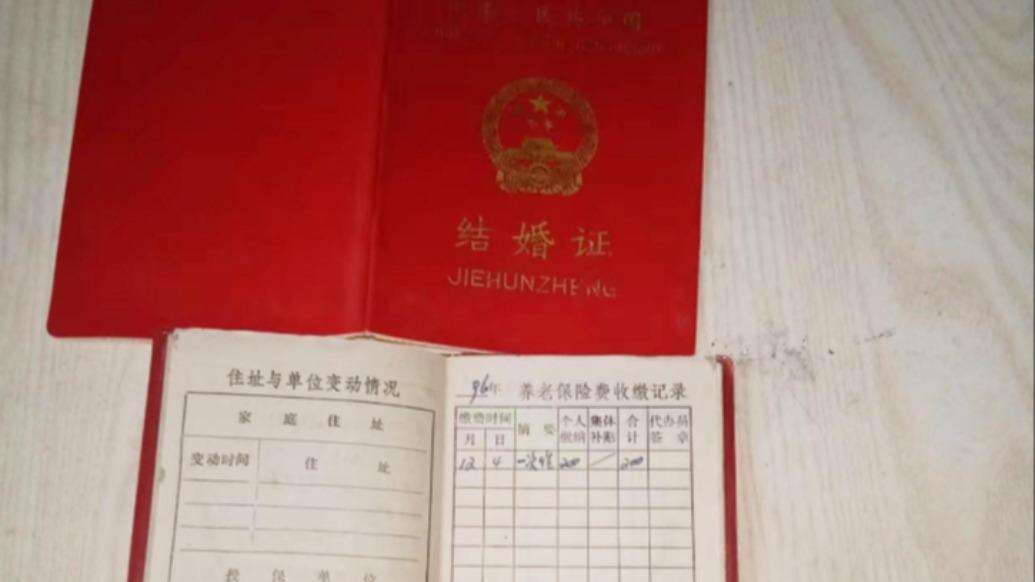 中华人民共和国
结婚证
JIEHUNZHENG
住址与单位变动情况
家庭住址
变动时间 住址
投保单位
96年 养老保险费收缴记录
缴费时间 摘要 个人缴纳 集体补贴 合计 代办员签章
月 日
12 4 一次性 200 / 200